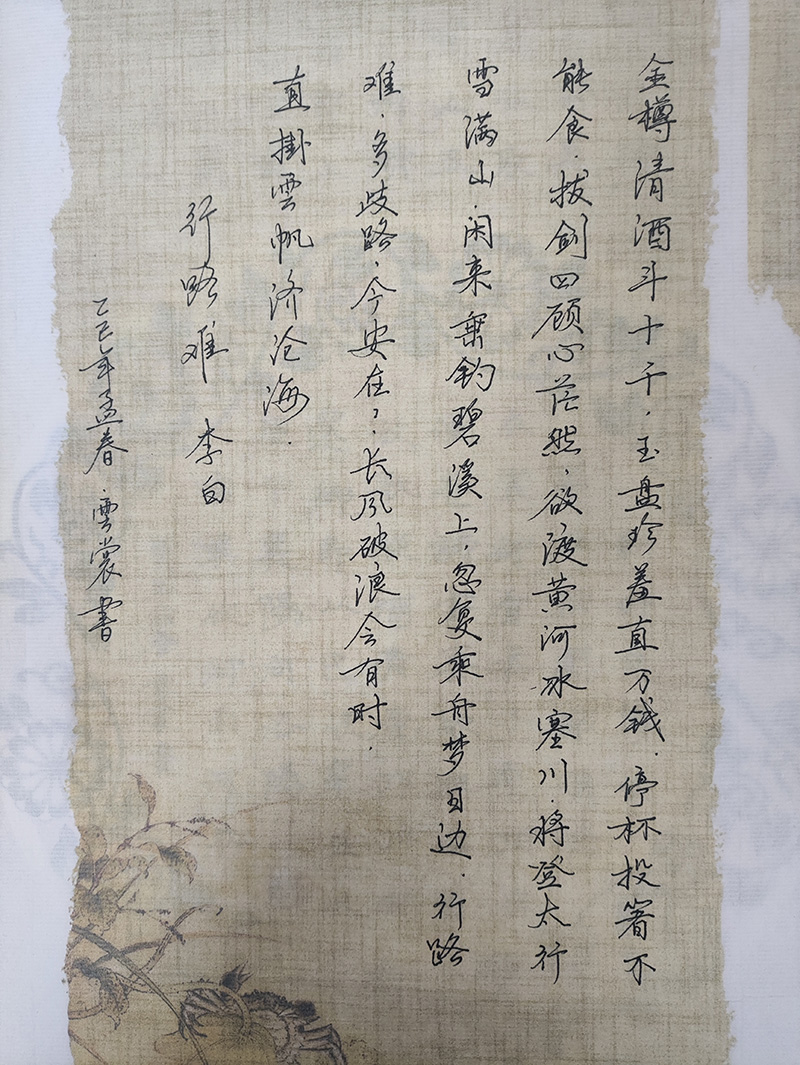 金樽清酒斗十千，玉盘珍羞直万钱．停杯投箸不
能食．拔剑四顾心茫然，欲渡黄河冰塞川．将登太行
雪满山．闲来垂钓碧溪上，忽复乘舟梦日边．行路
难．多歧路，今安在？．长风破浪会有时．
直掛雲帆济沧海．
行路难 李白
乙巳年孟春 雲裳書